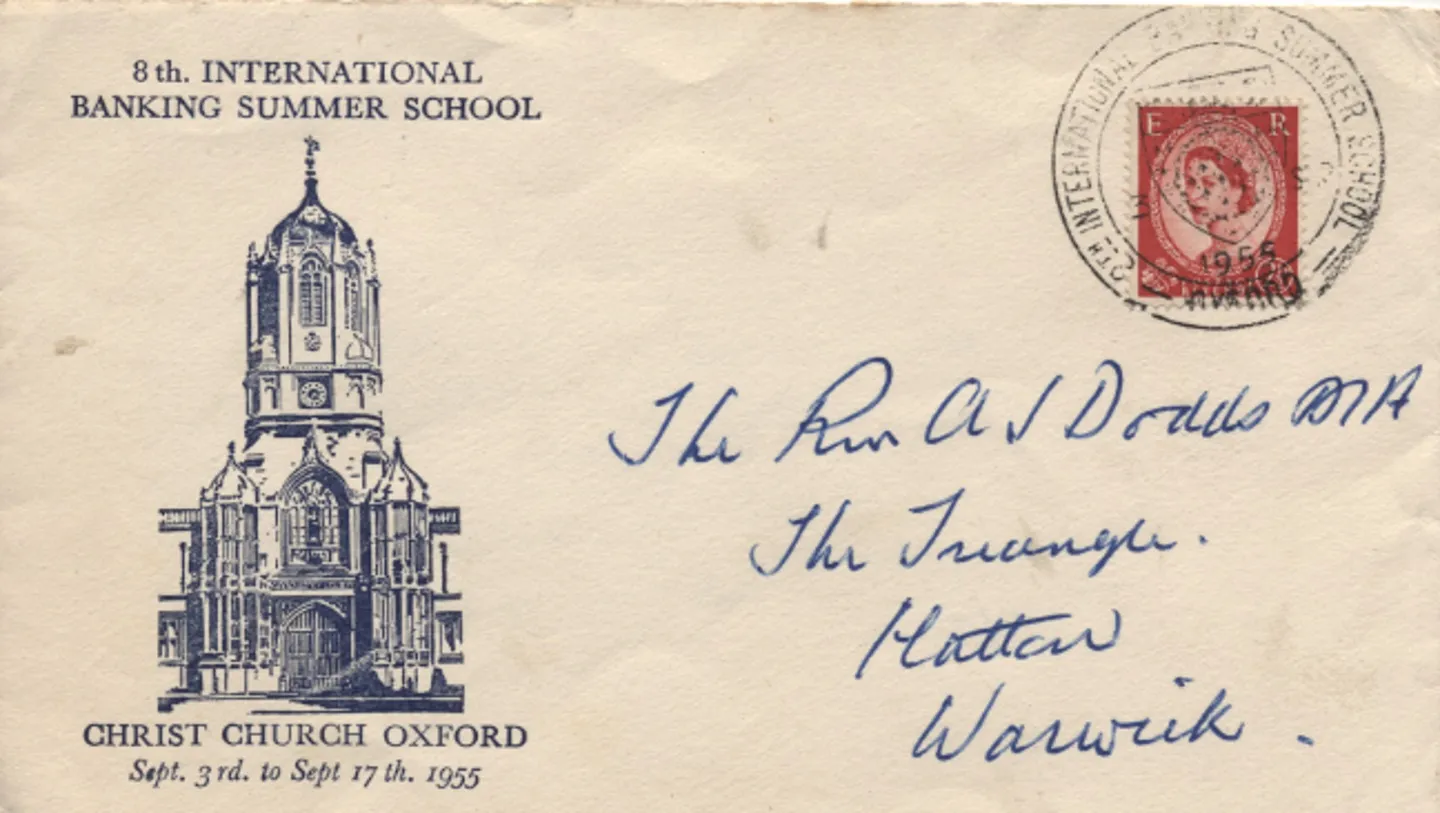 8th. INTERNATIONAL
BANKING SUMMER SCHOOL
CHRIST CHURCH OXFORD
Sept. 3rd. to Sept 17th. 1955
INTERNATIONAL BANKING SUMMER SCHOOL
E R
1955
OXFORD
The Rev A J Dodds MA
The Triangle.
Hatton
Warwick.